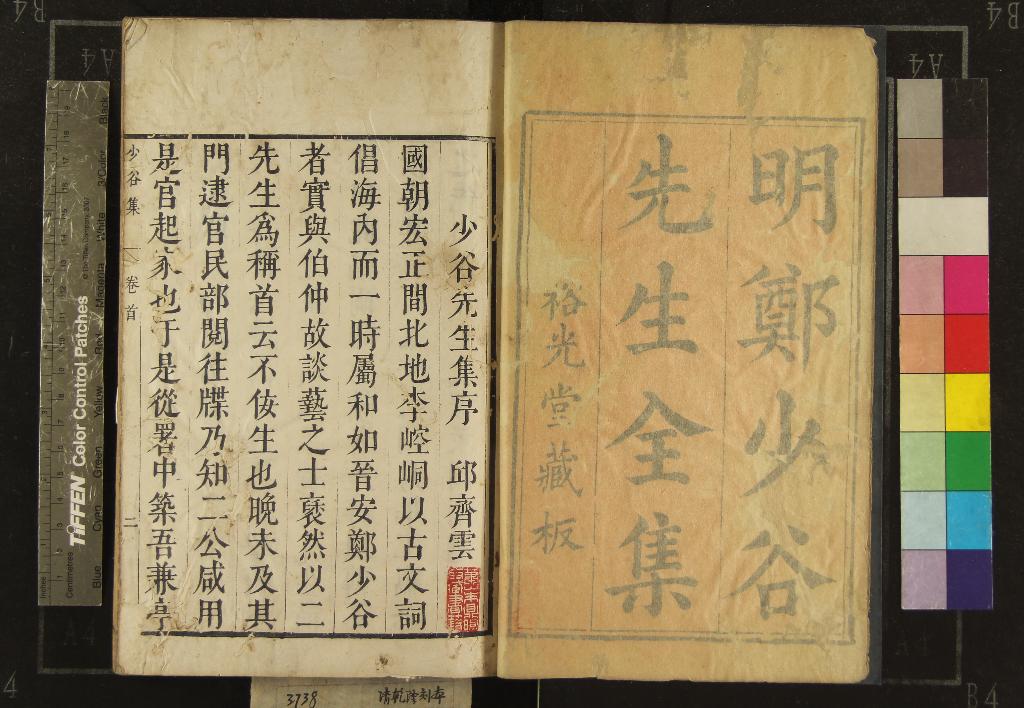 明鄭少谷
先生全集
裕光堂藏板
少谷先生集序 邱齊雲
國朝宏正間北地李崆峒以古文詞
倡海內而一時屬和如晉安鄭少谷
者實與伯仲故談藝之士裦然以二
先生爲稱首云不佞生也晚未及其
門逮官民部閱往牒乃知二公咸用
是官起家也于是從署中築吾兼亭
少谷集 卷首 二
3738 清乾隆刻本
TIFFEN Color Control Patches
Blue Cyan Green Yellow Red Magenta White 3/Color Black
Centimetres
Inches
A4
A4
B4
B4
A4
B4
4